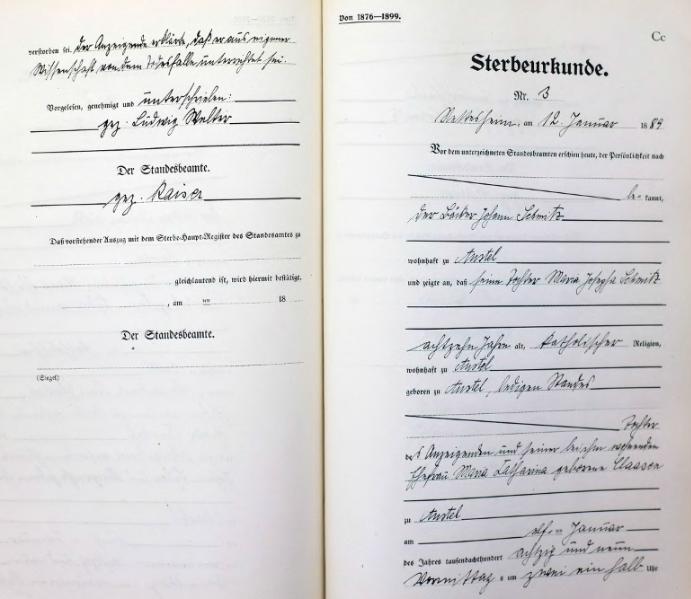 verstorben sei. Der Anzeigende erklärte, daß er aus eigener
Wissenschaft von dem Todesfalle unterrichtet sei.
Vorgelesen, genehmigt und unterschrieben:
gez. Ludwig Welter
Der Standesbeamte.
gez. Kaiser
Daß vorstehender Auszug mit dem Sterbe-Haupt-Register des Standesamtes zu
gleichlautend ist, wird hiermit bestätigt.
, am ten 18
Der Standesbeamte.
(Siegel)
Von 1876—1899.
Cc
Sterbeurkunde.
Nr. 3
Nettesheim, am 12. Januar 1889
Vor dem unterzeichneten Standesbeamten erschien heute, der Persönlichkeit nach
be= kannt,
der Bäcker Johann Schmitz
wohnhaft zu Anstel
und zeigte an, daß seine Tochter Maria Josepha Schmitz
achtzehn Jahre alt, katholischer Religion,
wohnhaft zu Anstel
geboren zu Anstel, ledigen Standes
Tochter
des Anzeigenden und seiner bei ihm wohnenden
Ehefrau Maria Catharina geborene Claasen
zu Anstel
am elf= Januar
des Jahres tausendachthundert achtzig und neun
Vormittag s um zwei ein halb Uhr